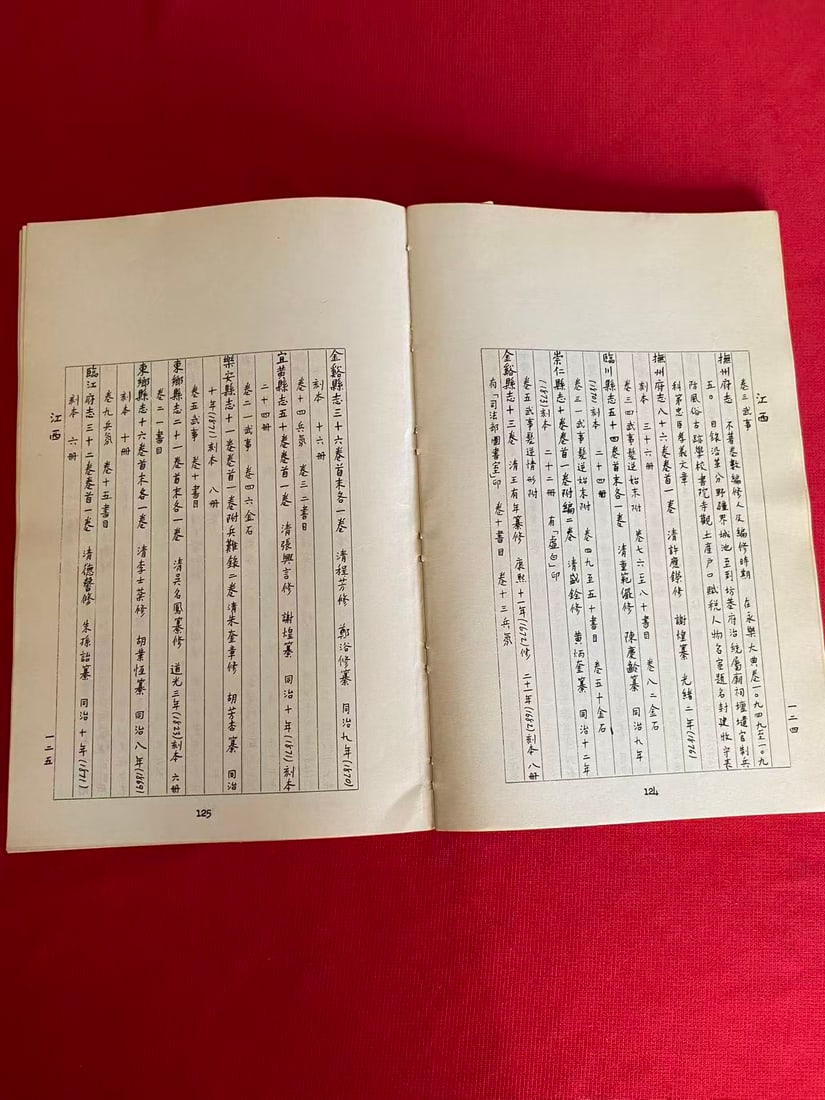 江西
一二四
卷三武事
撫州府志 不著卷數編修人及編修時期 在永樂大典卷一〇九四九至一〇九
五〇 目錄沿革分野疆界城池至到坊巷府治統屬廟祠壇壝官制兵
防風俗古蹟學校書院寺觀土產戶口賦稅人物名宦題名封建牧守表
科第忠臣孝義文章
撫州府志八十六卷首一卷 清許應鑅修 謝煌纂 光緒二年(1876)
刻本 三十六冊
卷三四武事髮逆始末附 卷七六至八十書目 卷八二金石
臨川縣志五十四卷首末各一卷 清童範儼修 陳慶齡纂 同治九年
(1870)刻本 二十四冊
卷三一武事髮逆始末附 卷四九至五十書目 卷五十金石
崇仁縣志十卷卷首一卷附編二卷 清盛銓修 黃炳奎纂 同治十二年
(1873)刻本 二十二冊 有「虛白」印
卷五武事髮逆情形附
金谿縣志十三卷 清王有年纂修 康熙十一年(1672)修 二十一年(1682)刻本 八冊
有「司法部圖書室」印 卷十書目 卷十三兵氛
124
金谿縣志三十六卷首末各一卷 清程芳修 鄭浴修纂 同治九年(1870)
刻本 十六冊
卷十四兵氛 卷三二書目
宜黃縣志五十卷卷首一卷 清張興言修 謝煌纂 同治十年(1871)刻本
二十四冊
卷二一武事 卷四六金石
樂安縣志十一卷卷首一卷附兵難錄二卷清朱奎章修 胡芳杏纂 同治
十年(1871)刻本 八冊
卷五武事 卷十書目
東鄉縣志二十一卷首末各一卷 清吳名鳳纂修 道光三年(1823)刻本 六冊
卷二一書目
東鄉縣志十六卷首末各一卷 清李士棻修 胡業恆纂 同治八年(1869)
刻本 十冊
卷九兵氛 卷十五書目
臨江府志三十二卷卷首一卷 清德馨修 朱孫詒纂 同治十年(1871)
刻本 六冊
江西
一二五
125